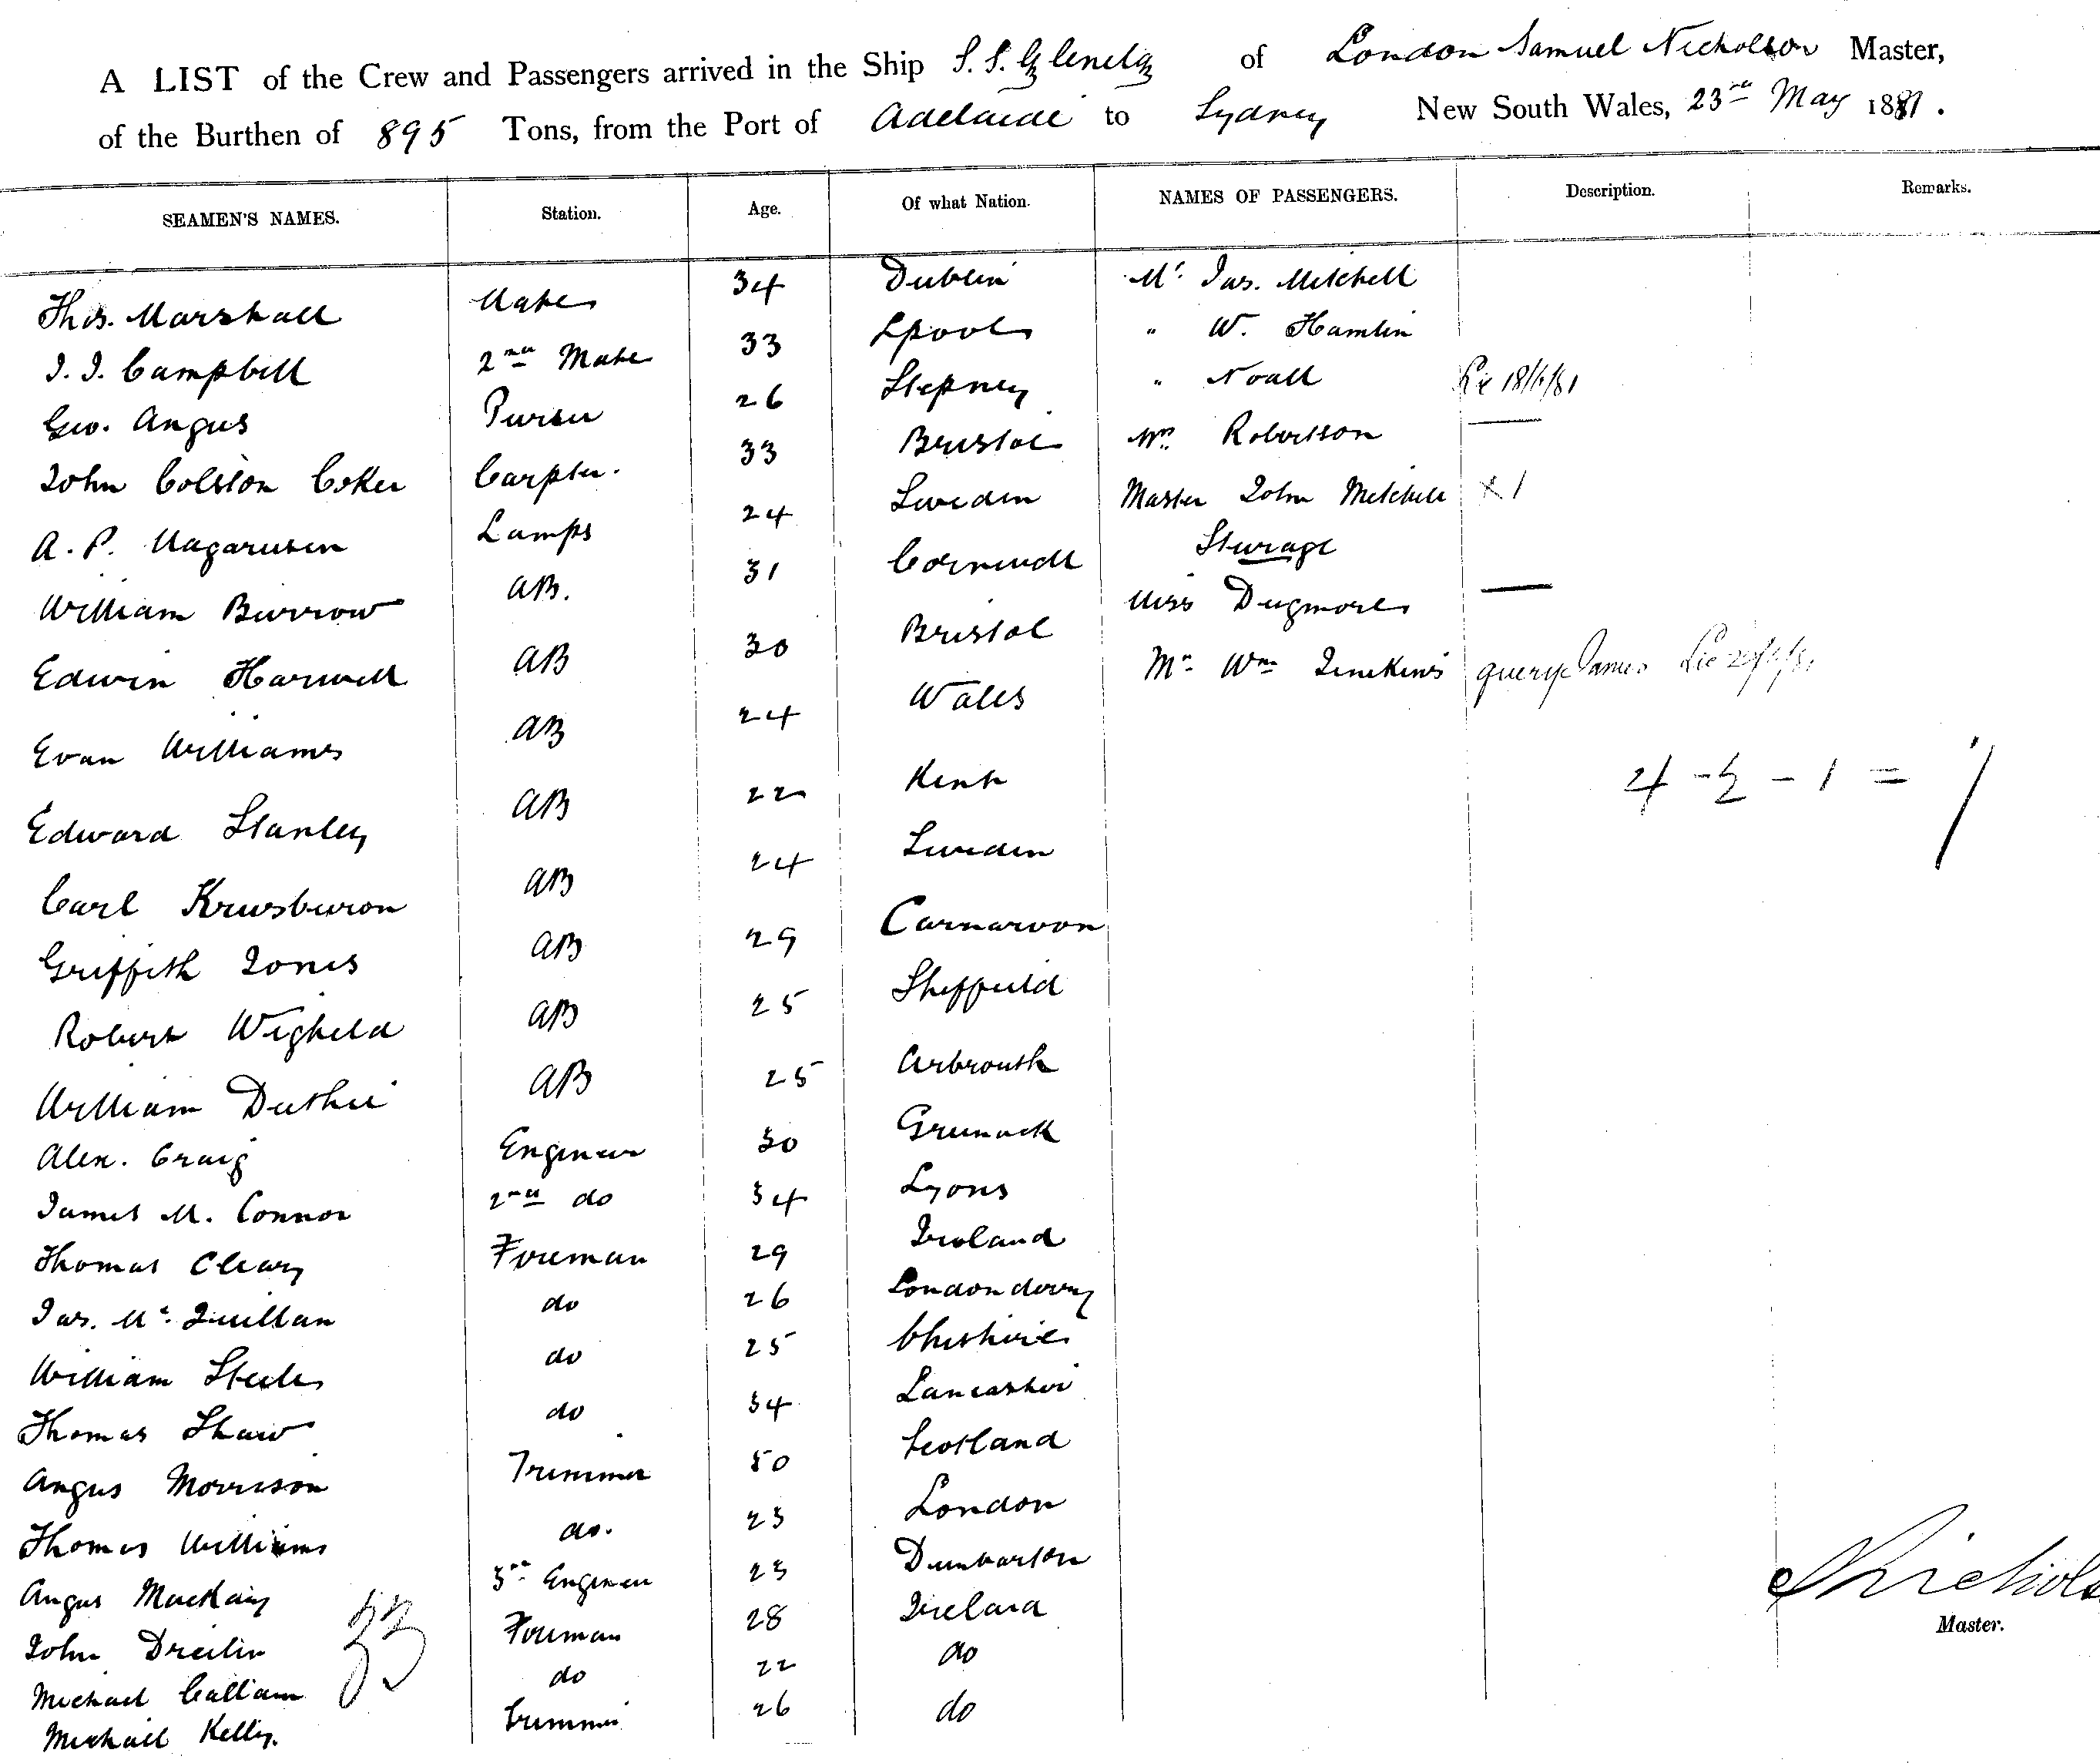 A LIST of the Crew and Passengers arrived in the Ship S.S. Glenelg of London Samuel Nicholson Master,
of the Burthen of 895 Tons, from the Port of Adelaide to Sydney New South Wales, 23rd May 1881.
SEAMEN'S NAMES. Station. Age. Of what Nation. NAMES OF PASSENGERS. Description. Remarks.
Thos. Marshall Mate 34 Dublin Mr. Jas. Mitchell
J. J. Campbell 2nd Mate 33 Lpool " W. Hamlin
Geo. Angus Purser 26 Stepney " Noall 18/6/81
John Colston Coker Carpter. 33 Bristol Mrs Robertson —
A. P. Lamps 24 Sweden Master John Mitchell X 1
Steerage
William Burrow AB. 31 Cornwall Miss Dugmore —
Edwin Harwell AB 30 Bristol Mr Wm Jenkins query James
Evan Williams AB 24 Wales
4 - 2 - 1 = /
Edward Stanley AB 22 Kent
Carl AB 24 Sweden
Griffith Jones AB 29 Carnarvon
Robert AB 25 Sheffield
William Duthie AB 25 Arbroath
Alex. Craig Engineer 30 Greenock
James M. Connor 2nd do 34 Lyons
Thomas Cleary Fireman 29 Ireland
Jas. Mc. Quillan do 26 Londonderry
William Steele do 25 Cheshire
Thomas Shaw do 34 Lancashire
Angus Morrison Trimmer 50 Scotland
Thomas Williams do. 23 London
Angus MacKay 3rd Engineer 23 Dumbarton
John Fireman 28 Ireland
33
Michael Callam do 22 do
Michael Kelly. Trimmer 26 do
SNichols
Master.